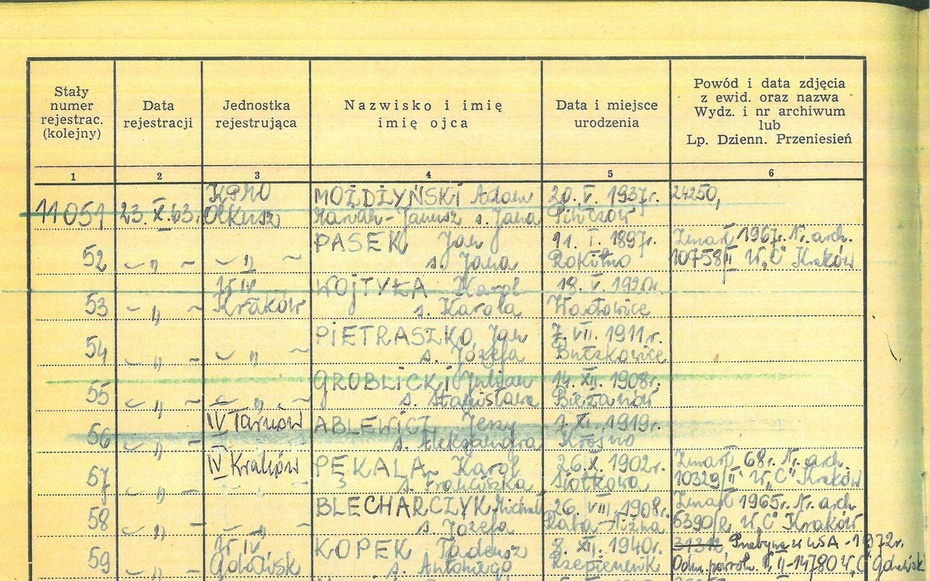 Stały numer rejestrac. (kolejny)
Data rejestracji
Jednostka rejestrująca
Nazwisko i imię imię ojca
Data i miejsce urodzenia
Powód i data zdjęcia z ewid. oraz nazwa Wydz. i nr archiwum lub Lp. Dzienn. Przeniesień
1 2 3 4 5 6
KPMO MOŻDŻYŃSKI Adam 20. V. 1937r. 24250,
11051 23. X. 63. Olkusz Marian-Janusz s. Jana Pińczów
PASEK Jan 11. I. 1897r. Zmarł 1967r. Nr. arch.
52 - " - - " - s. Jana Rokitno 10758/II W. "C" Kraków
W IV WOJTYŁA Karol 18. V. 1920r.
53 - " - Kraków s. Karola Wadowice
PIETRASZKO Jan 7. VII. 1911r.
54 - " - - " - s. Józefa Buczkowice
GROBLICKI Julian 14. XII. 1908r.
55 - " - - " - s. Stanisława Bieżanów
IV Tarnów ABLEWICZ Jerzy 1. XI. 1919r.
56 - " - s. Aleksandra Krosno
IV Kraków PĘKALA Karol 26. X. 1902r. Zmarł 68r. Nr. arch.
57 - " - s. Franciszka Siołkowa 10329/II W. "C" Kraków
BLECHARCZYK Michał 26. VIII. 1908r. Zmarł 1965r. Nr. arch
58 - " - - " - s. Józefa Raba-Niżna 5390/R W. "C" Kraków
W IV KOPEK Tadeusz 8. XII. 1940r. w USA - 1972r.
59 - " - Gdańsk s. Antoniego Rzepiennik II-14780 W. "C" Gdańsk